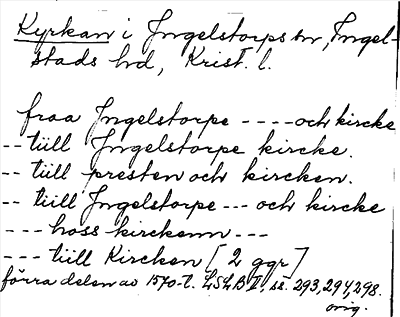 Kyrkan i Ingelstorps sn, Ingel-
stads hd, Krist. l.
fraa Ingelstorpe ---- och kircke
-- tiill Ingelstorpe kircke.
-- tiill presten och kircken.
-- tiill Ingelstorpe --- och kircke
--- hoss kirckenn ---
--- tiill Kircken [2 ggr]
förra delen av 1570-t. LSLB I, ss. 293, 294, 298.
orig.